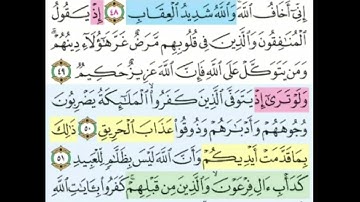 إِنِّىٓ أَخَافُ ٱللَّهَ وَٱللَّهُ شَدِيدُ ٱلْعِقَابِ ٤٨ إِذْ يَقُولُ
ٱلْمُنَـٰفِقُونَ وَٱلَّذِينَ فِى قُلُوبِهِم مَّرَضٌ غَرَّ هَـٰٓؤُلَآءِ دِينُهُمْ ۗ
وَمَن يَتَوَكَّلْ عَلَى ٱللَّهِ فَإِنَّ ٱللَّهَ عَزِيزٌ حَكِيمٌ ٤٩
وَلَوْ تَرَىٰٓ إِذْ يَتَوَفَّى ٱلَّذِينَ كَفَرُوا۟ ۙ ٱلْمَلَـٰٓئِكَةُ يَضْرِبُونَ
وُجُوهَهُمْ وَأَدْبَـٰرَهُمْ وَذُوقُوا۟ عَذَابَ ٱلْحَرِيقِ ٥٠ ذَٰلِكَ
بِمَا قَدَّمَتْ أَيْدِيكُمْ وَأَنَّ ٱللَّهَ لَيْسَ بِظَلَّـٰمٍ لِّلْعَبِيدِ ٥١
كَدَأْبِ ءَالِ فِرْعَوْنَ ۙ وَٱلَّذِينَ مِن قَبْلِهِمْ ۚ كَفَرُوا۟ بِـَٔايَـٰتِ ٱللَّهِ